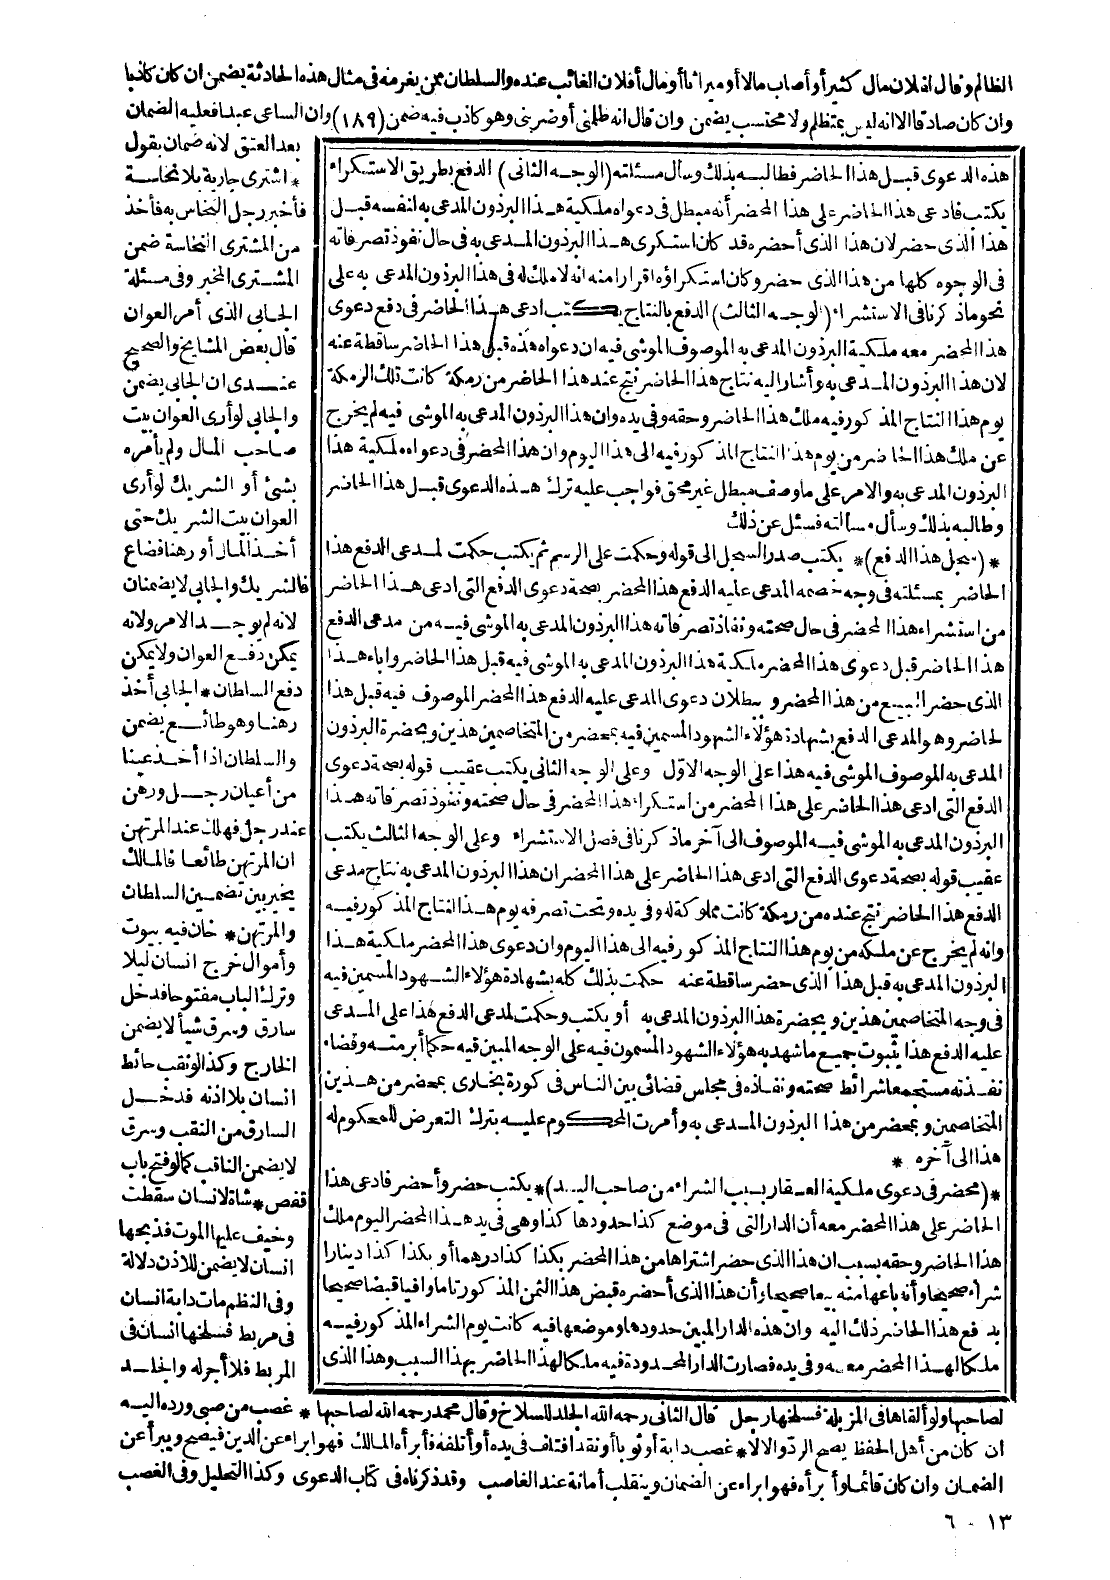 الظالم وقال لفلان مال كثير أو أصاب مالا أو ميراثا أو مال أفلان الغائب عنده والسلطان ممن يغرمه فى مثال هذه الحادثة يضمن ان كان كاذبا
وان كان صادقا الا انه ليس بمتظلم ولا محتسب يضمن وان قال انه ظلمنى أو ضربنى وهو كاذب فيه ضمن (١٨٩) وان الساعى عبدا فعليه الضمان
بعد العتق لانه ضمان بقول
* اشترى جارية بلا نخاسة
فأخبر رجل النخاس به فأخذ
من المشترى النخاسة ضمن
المشترى المخبر وفى مسئلة
الجابى الذى أمر العوان
قال بعض المشايخ والصحيح
عنــدى ان الجابى يضمن
والجابى لو أرى العوان بيت
صاحب المال ولم يأمره
بشئ أو الشريك لو أرى
العوان بيت الشريك حتى
أخذ المال أو رهنا فضاع
فالشريك والجابى لا يضمنان
لانه لم يوجــد الامر ولانه
يمكن دفع العوان ولا يمكن
دفع السلطان * الجابى أخذ
رهنا وهو طائع يضمن
والسلطان اذا أخذ عينا
من أعيان رجل ورهن
عند رجل فهلك عند المرتهن
ان المرتهن طائعا فالمالك
يخير بين تضمين السلطان
والمرتهن * خان فيه بيوت
وأموال خرج انسان ليلا
وترك الباب مفتوحا فدخل
سارق وسرق شيأ لا يضمن
الخارج وكذا لو نقب حائط
انسان بلا اذنه فدخل
السارق من النقب وسرق
لا يضمن الناقب كما لو فتح باب
قفص * شاة لانسان سقطت
وخيف عليها الموت فذبحها
انسان لا يضمن للاذن دلالة
وفى النظم مات دابة انسان
فى مربط فسلخها انسان فى
المربط فلا أجر له والجلــد
هذه الدعوى قبل هذا الحاضر فطالبه بذلك وسأل مسئلته (الوجه الثانى) الدفع بطريق الاستكراء
يكتب فادعى هذا الحاضر على هذا المحضر أنه مبطل فى دعواه ملكية هذا البرذون المدعى به لنفسه قبل
هذا الذى حضر لان هذا الذى أحضره قد كان استكرى هذا البرذون المدعى به فى حال نفوذ تصرفاته
فى الوجوه كلها من هذا الذى حضر وكان استكراؤه اقرارا منه انه لا ملك له فى هذا البرذون المدعى به على
نحو ما ذكرنا فى الاستشراء (الوجه الثالث) الدفع بالنتاج يكتب ادعى هذا الحاضر فى دفع دعوى
هذا المحضر معه ملكية البرذون المدعى به الموصوف الموشى فيه ان دعواه هذه قبل هذا الحاضر ساقطة عنه
لان هذا البرذون المدعى به وأشار اليه نتاج هذا الحاضر نتج عند هذا الحاضر من رمكة كانت تلك الرمكة
يوم هذا النتاج المذكور فيه ملك هذا الحاضر وحقه وفى يده وان هذا البرذون المدعى به الموشى فيه لم يخرج
عن ملك هذا الحاضر من يوم هذا النتاج المذكور فيه الى هذا اليوم وان هذا المحضر فى دعواه ملكية هذا
البرذون المدعى به والامر على ما وصف مبطل غير محق فواجب عليه ترك هذه الدعوى قبل هذا الحاضر
وطالبه بذلك وسأل مسألته فسئل عن ذلك
* (سجل هذا الدفع) * يكتب صدر السجل الى قوله وحكمت على الرسم ثم يكتب حكمت لمدعى الدفع هذا
الحاضر بمسئلته فى وجه خصمه المدعى عليه الدفع هذا المحضر بصحة دعوى الدفع التى ادعى هذا الحاضر
من استشراء هذا المحضر فى حال صحته ونفاذ تصرفاته هذا البرذون المدعى به الموشى فيه من مدعى الدفع
هذا الحاضر قبل دعوى هذا المحضر ملكية هذا البرذون المدعى به الموشى فيه قبل هذا الحاضر واباء هذا
الذى حضر البيع من هذا المحضر وببطلان دعوى المدعى عليه الدفع هذا المحضر الموصوف فيه قبل هذا
لحاضر وهو المدعى الدفع بشهادة هؤلاء الشهود المسمين فيه بمحضر من المتخاصمين هذين وبحضرة البرذون
المدعى به الموصوف الموشى فيه هذا على الوجه الاول وعلى الوجه الثانى يكتب عقيب قوله بصحة دعوى
الدفع التى ادعى هذا الحاضر على هذا المحضر من استكراء هذا المحضر فى حال صحته ونفوذ تصرفاته هذا
البرذون المدعى به الموشى فيه الموصوف الى آخر ما ذكرنا فى فصل الاستشراء وعلى الوجه الثالث يكتب
عقيب قوله بصحة دعوى الدفع التى ادعى هذا الحاضر على هذا المحضر ان هذا البرذون المدعى به نتاج مدعى
الدفع هذا الحاضر نتج عنده من رمكة كانت مملوكة له وفى يده وتحت تصرفه يوم هذا النتاج المذكور فيه
وانه لم يخرج عن ملكه من يوم هذا النتاج المذكور فيه الى هذا اليوم وان دعوى هذا المحضر ملكية هذا
البرذون المدعى به قبل هذا الذى حضر ساقطة عنه حكمت بذلك كله بشهادة هؤلاء الشهود المسمين فيه
فى وجه المتخاصمين هذين وبحضرة هذا البرذون المدعى به أو يكتب وحكمت لمدعى الدفع هذا على المدعى
عليه الدفع هذا بثبوت جميع ما شهد به هؤلاء الشهود المسمون فيه على الوجه المبين فيه حكما أبرمته وقضاء
نفذته مستجمعا شرائط صحته ونفاذه فى مجلس قضائى بين الناس فى كورة بخارى بمحضر من هذين
المتخاصمين وبمحضر من هذا البرذون المدعى به وأمرت المحكوم عليه بترك التعرض للمحكوم له
هذا الى آخره *
* (محضر فى دعوى ملكية العقار بسبب الشراء من صاحب اليد) * يكتب حضر وأحضر فادعى هذا
الحاضر على هذا المحضر معه أن الدار التى فى موضع كذا حدودها كذا وهى فى يد هذا المحضر اليوم ملك
هذا الحاضر وحقه بسبب ان هذا الذى حضر اشتراها من هذا المحضر بكذا كذا درهما أو بكذا كذا دينارا
شراء صحيحا وأنه باعها منه بيعا صحيحا وأن هذا الذى أحضره قبض هذا الثمن المذكور تاما وافيا قبضا صحيحا
بدفع هذا الحاضر ذلك اليه وان هذه الدار المبين حدودها وموضعها فيه كانت يوم الشراء المذكور فيه
ملكا لهذا المحضر معه وفى يده فصارت الدار المحدودة فيه ملكا لهذا الحاضر بهذا السبب وهذا الذى
لصاحبها ولو ألقاها فى المزبلة فسلخها رجل قال الثانى رحمه الله الجلد للسلاخ وقال محمد رحمه الله لصاحبها * غصب من صبى ورده اليه
ان كان من أهل الحفظ يصح الرد والا لا * غصب دابة أو ثوبا أو نقدا فتلف فى يده أو أتلفه فأبرأه المالك فهو ابراء عن الدين فيصح ويبرأ عن
الضمان وان كان قائما وأبرأه فهو ابراء عن الضمان وينقلب أمانة عند الغاصب وقد ذكرناه فى كتاب الدعوى وكذا التحليل وفى الغصب
١٣ - ٦